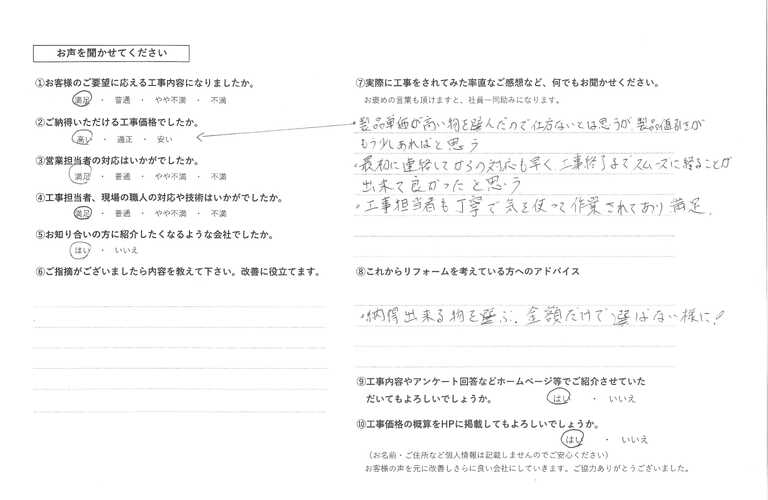 お声を聞かせてください
①お客様のご要望に応える工事内容になりましたか。
満足 ・ 普通 ・ やや不満 ・ 不満
②ご納得いただける工事価格でしたか。
高い ・ 適正 ・ 安い
③営業担当者の対応はいかがでしたか。
満足 ・ 普通 ・ やや不満 ・ 不満
④工事担当者、現場の職人の対応や技術はいかがでしたか。
満足 ・ 普通 ・ やや不満 ・ 不満
⑤お知り合いの方に紹介したくなるような会社でしたか。
はい ・ いいえ
⑥ご指摘がございましたら内容を教えて下さい。改善に役立てます。
⑦実際に工事をされてみた率直なご感想など、何でもお聞かせください。
お褒めの言葉も頂けますと、社員一同励みになります。
・製品単価が高い物を選んだので仕方ないとは思うが製品値引きが
もう少しあればと思う
・最初に連絡してからの対応も早く、工事終了までスムーズに終ることが
出来て良かったと思う
・工事担当者も丁寧で気を使って作業されており満足。
⑧これからリフォームを考えている方へのアドバイス
・納得出来る物を選ぶ。金額だけで選ばない様に!
⑨工事内容やアンケート回答などホームページ等でご紹介させていた
だいてもよろしいでしょうか。 はい ・ いいえ
⑩工事価格の概算をHPに掲載してもよろしいでしょうか。
はい ・ いいえ
（お名前・ご住所など個人情報は記載しませんのでご安心ください）
お客様の声を元に改善しさらに良い会社にしていきます。ご協力ありがとうございました。